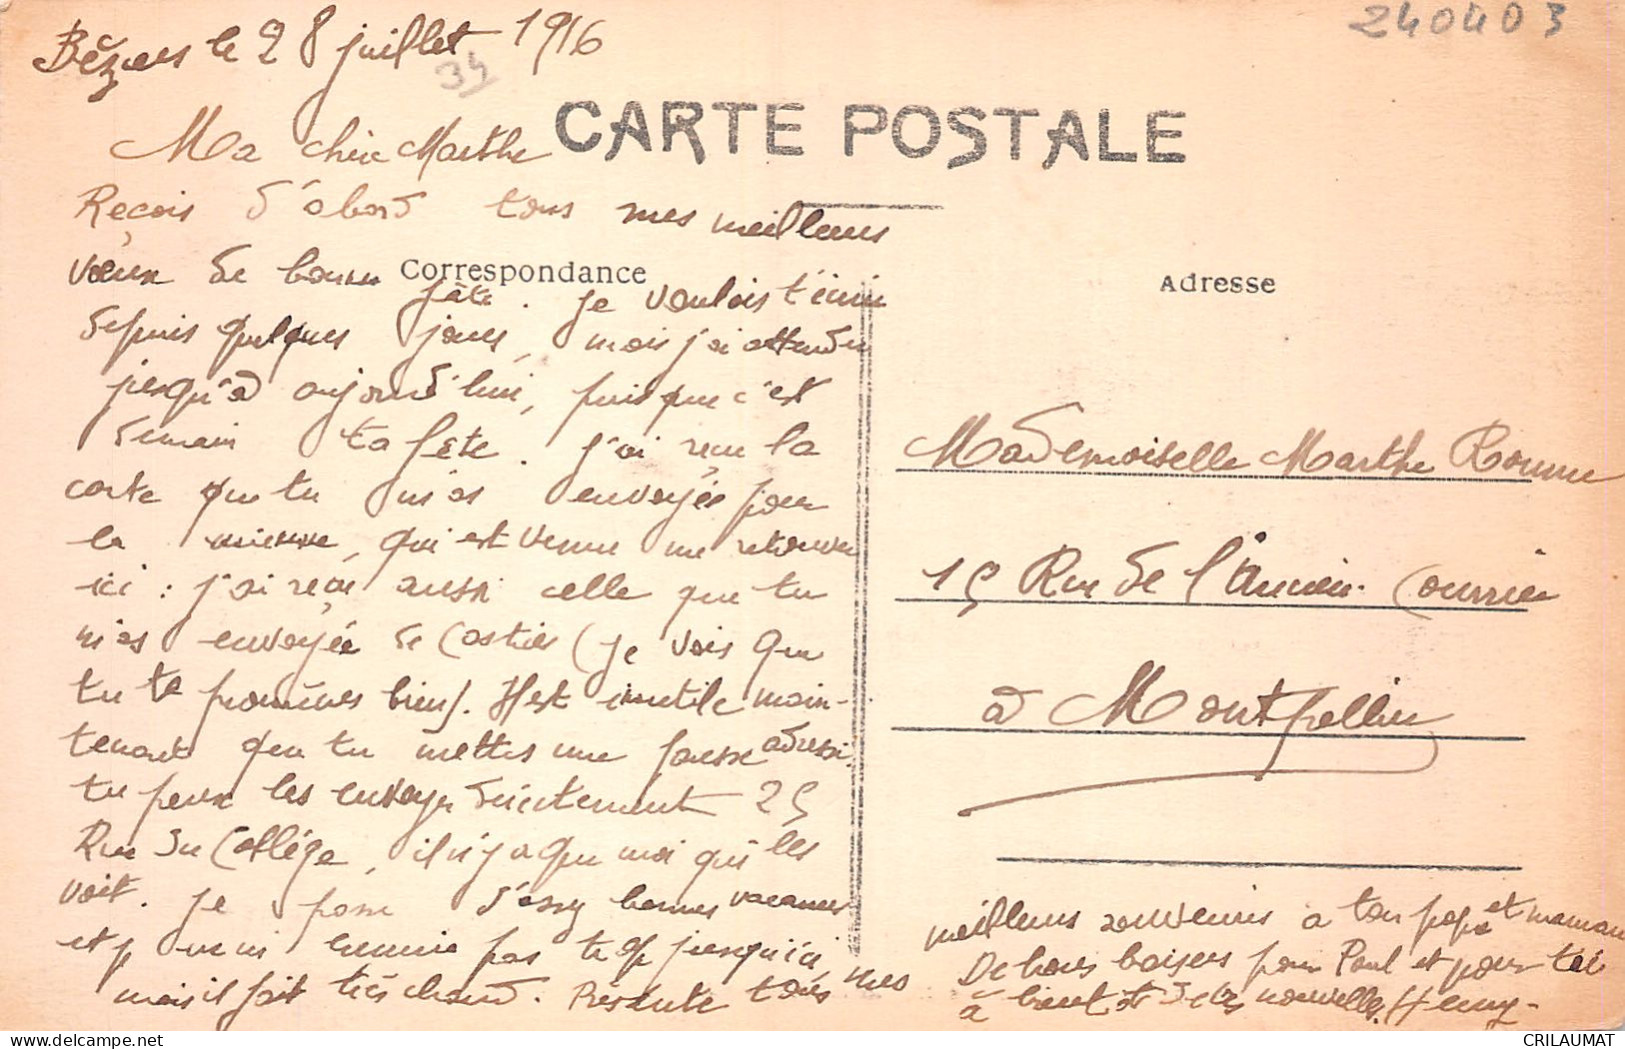 240403
Béziers le 28 juillet 1916
34
CARTE POSTALE
Ma chère Marthe
Reçois d'abord tous mes meilleurs
vœux de bonne fête. Je voulais t'écrire
Correspondance
depuis quelques jours, mais j'ai attendu
jusqu'à aujourd'hui, puisque c'est
demain ta fête. J'ai reçu la
carte que tu m'as envoyée pour
la mienne, qui est venue me retrouver
ici : j'ai reçu aussi celle que tu
m'as envoyée de Castries (je vois que
tu te promènes bien). Il est inutile main-
tenant que tu mettes une fausse adresse
tu peux les envoyer directement 25
Rue du Collège, il n'y a que moi qui les
voit. Je passe d'assez bonnes vacances
et je m'ennuie pas trop jusqu'ici
mais il fait très chaud. Présente tous mes
Adresse
Mademoiselle Marthe
15 Rue de l'Ancien Courrier
à Montpellier
meilleurs souvenirs à ton papa et maman
De bons baisers pour Paul et pour toi
à bientôt de tes nouvelles. Henry-
CRILAUMAT